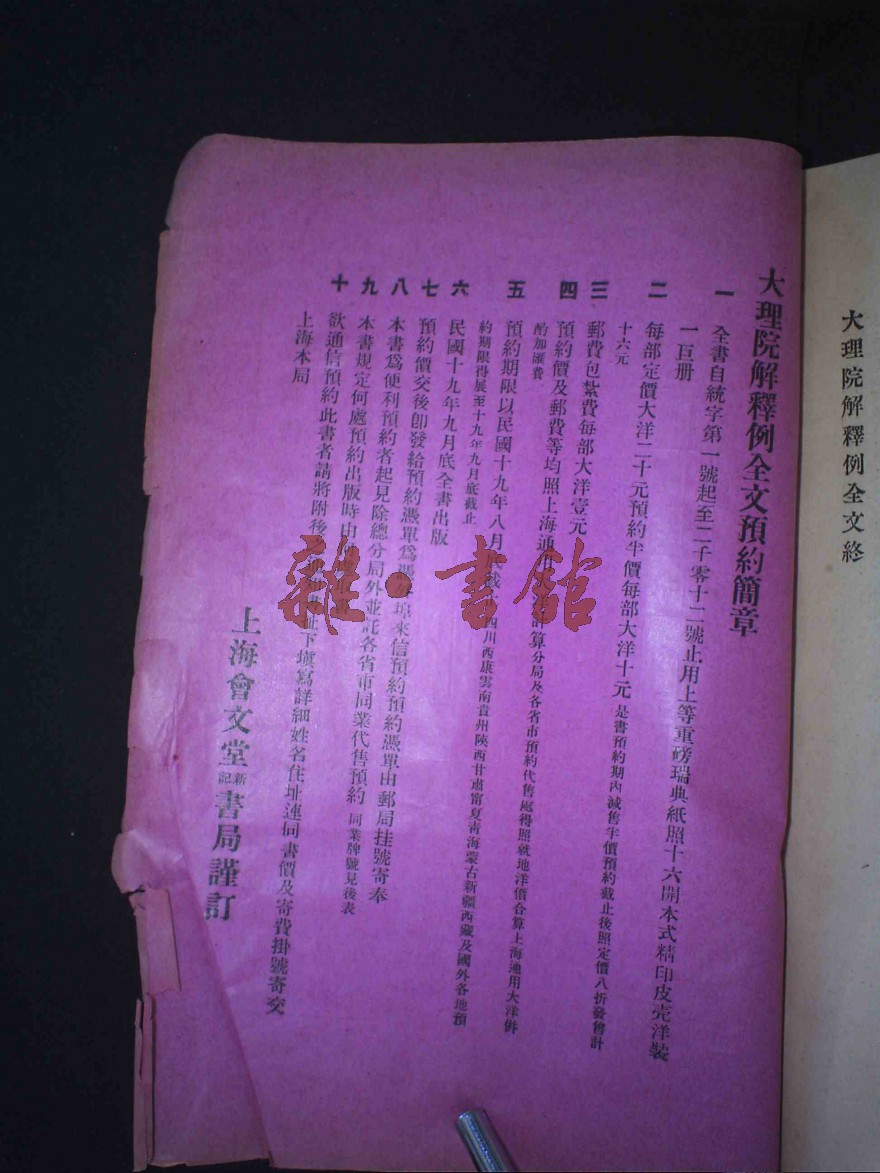 大理院解釋例全文終
大理院解釋例全文預約簡章
一 全書自統字第一號起至二千零十二號止用上等重磅瑞典紙照十六開本式精印皮壳洋裝
一巨册
二 每部定價大洋二十元預約半價每部大洋十元 是書預約期內減售半價預約截止後照定價八折發售計
十六元
三 郵費包紮費每部大洋壹元
四 預約價及郵費等均照上海通用 計算分局及各省市預約代售處得照就地洋價合算上海通用大洋併
酌加匯費
五 預約期限以民國十九年八月 四川西康雲南貴州陝西甘肅甯夏靑海蒙古新疆西藏及國外各地預
約期限得展至十九年九月底截止
六 民國十九年九月底全書出版
七 預約價交後卽發給預約憑單爲 埠來信預約預約憑單由郵局挂號寄奉
八 本書爲便利預約者起見除總分局外並託各省市同業代售預約 同業牌號見後表
九 本書規定何處預約出版時由
十 欲通信預約此書者請將附後 下塡寫詳細姓名住址連同書價及寄費掛號寄交
上海本局
上海會文堂新記書局謹訂
雜·書館